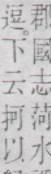 郡國志菏水
逗。下云抲以